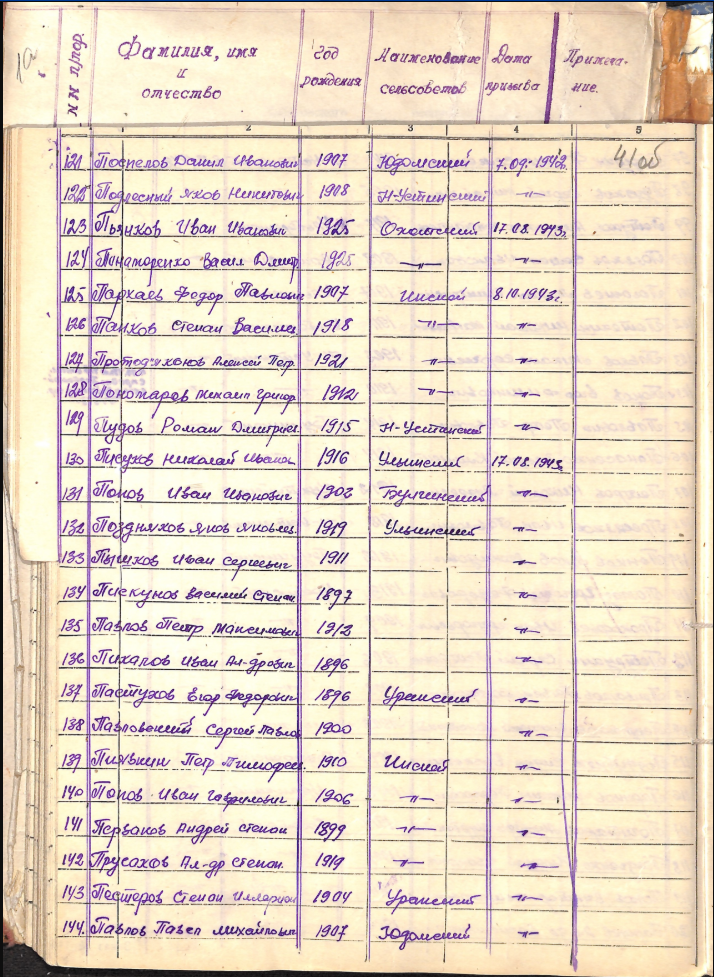 1а
NN п/пор. Фамилия, имя и отчество Год рождения Наименование сельсоветов Дата призыва Примечание.
1 2 3 4 5
121 Поспелов Данил Иванович 1907 Юдомский 7.09.1942. 41об
122 Подлесный Яков Никитович 1908 Н-Устинский -〃-
123 Пьянков Иван Иванович 1925 Охотский 17.08.1943г.
124 Васил Дмитр. 1925 -〃- -〃-
125 Пархаев Федор Павлович 1907 Инской 8.10.1943г.
126 Панков Степан Василье 1918 -〃- -〃-
127 Протодьяконов Алексей Петр 1921 -〃- -〃-
128 Пономарев Михаил Григор 1912 -〃- -〃-
129 Пудов Роман Дмитриев 1915 Н-Устинский -〃-
130 Писухов Николай Иванов 1916 Ульинский 17.08.1943
131 Попов Иван Иванович 1902 Булгинский -〃-
132 Поздняков Яков Яковлев. 1919 Ульинский -〃-
133 Пышков Иван Сергеевич 1911 -〃-
134 Пискунов Василий Степан 1897 -〃-
135 Павлов Петр Максимович 1912 -〃-
136 Пихалов Иван Ал-дрович 1896 -〃-
137 Пастухов Егор Федорович 1896 Уракский -〃-
138 Павловский Сергей Павлов 1900 -〃-
139 Петр Тимофее 1910 Инской -〃-
140 Попов Иван Гаврилович 1906 -〃- -〃-
141 Перваков Андрей Степан 1899 -〃- -〃-
142 Прусаков Ал-др Степан. 1919 -〃- -〃-
143 Пестеров Степан Илларион 1904 Уракский -〃-
144. Павлов Павел Михайлович 1907 Юдомский -〃-